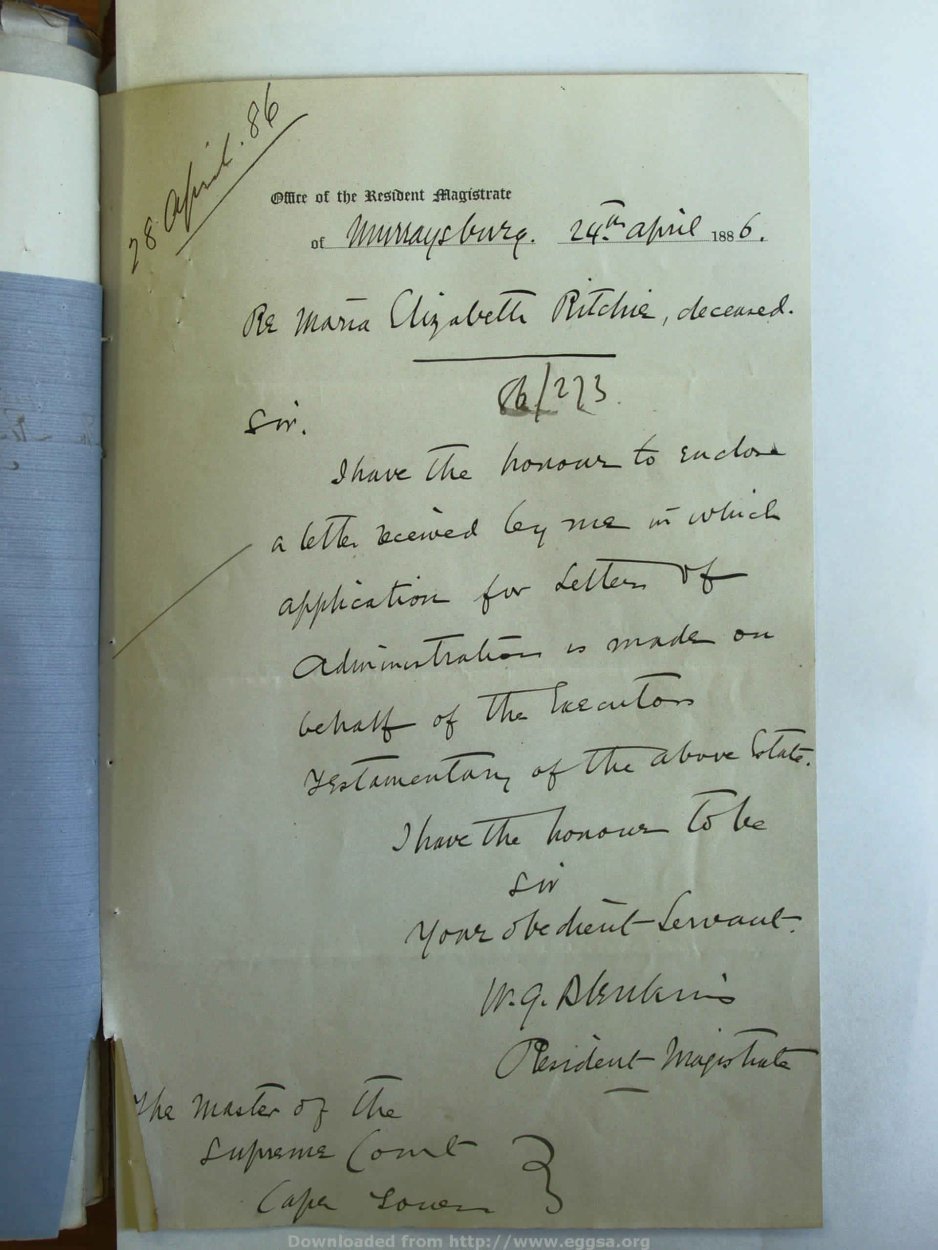 28 April. 86
Office of the Resident Magistrate
of Murraysburg. 24th April 1886.
Re Maria Elizabeth Ritchie, deceased.
86/273.
Sir.
I have the honour to enclose
a letter received by me in which
application for Letters of
Administration is made on
behalf of the Executors
Testamentary of the above Estate.
I have the honour to be
Sir
Your obedient Servant.
W. G.
Resident Magistrate
The Master of the
Supreme Court
Cape Town
Downloaded from http://www.eggsa.org